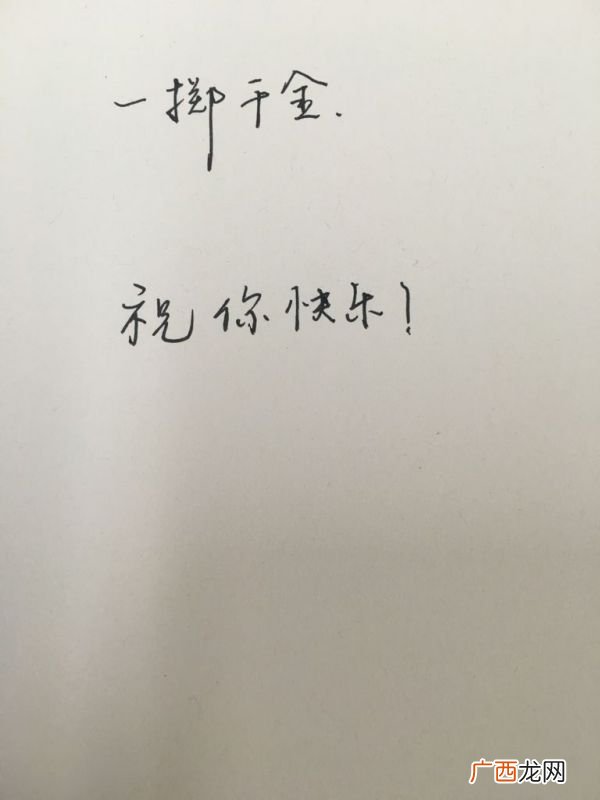 一掷千金.
祝你快乐!
广西龙网